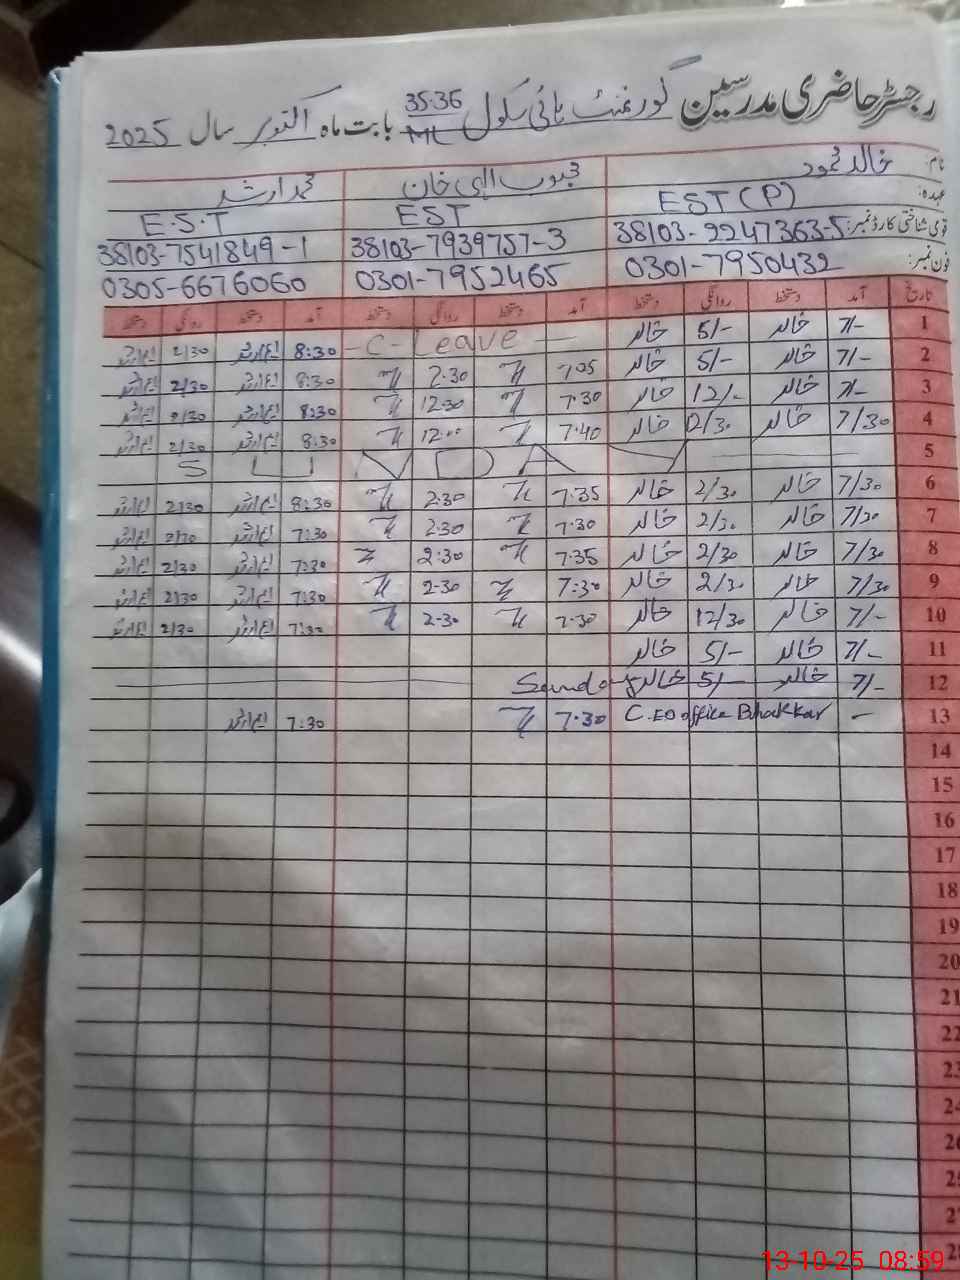 رجسٹر حاضری مدرسین گورنمنٹ ہائی سکول 35.36 ML بابت ماہ اکتوبر سال 2025
نام: خالد محمود محبوب الہی خان محمد ارشد
عہدہ: EST (P) EST E.S.T
قومی شناختی کارڈ نمبر: 38103-2247363-5 38103-7939757-3 38103-7541849-1
فون نمبر: 0301-7950432 0301-7952465 0305-6676060
تاریخ آمد دستخط روانگی دستخط آمد دستخط روانگی دستخط آمد دستخط روانگی دستخط
1 7/- خالد 5/- خالد - C - Leave - 8:30 ایم ارشد 2/30 ایم ارشد
2 7/- خالد 5/- خالد 7.05 2.30 8:30 ایم ارشد 2/30 ایم ارشد
3 7/- خالد 12/- خالد 7.30 12.30 8:30 ایم ارشد 2/30 ایم ارشد
4 7/30 خالد 12/30 خالد 7.40 12.00 8:30 ایم ارشد 2/30 ایم ارشد
5 S U N D A Y
6 7/30 خالد 2/30 خالد 7.35 2.30 8:30 ایم ارشد 2/30 ایم ارشد
7 7/30 خالد 2/30 خالد 7.30 2.30 7:30 ایم ارشد 2/30 ایم ارشد
8 7/30 خالد 2/30 خالد 7.35 2:30 7:30 ایم ارشد 2/30 ایم ارشد
9 7/30 خالد 2/30 خالد 7:30 2.30 7:30 ایم ارشد 2/30 ایم ارشد
10 7/- خالد 12/30 خالد 7.30 2.30 7:30 ایم ارشد 2/30 ایم ارشد
11 7/- خالد 5/- خالد
12 7/- خالد 5/- خالد Sunday
13 - C.EO office Bhakkar 7.30 7:30 ایم ارشد
14
15
16
17
18
19
20
21
22
23
24
26
25
27
28
13-10-25 08:59